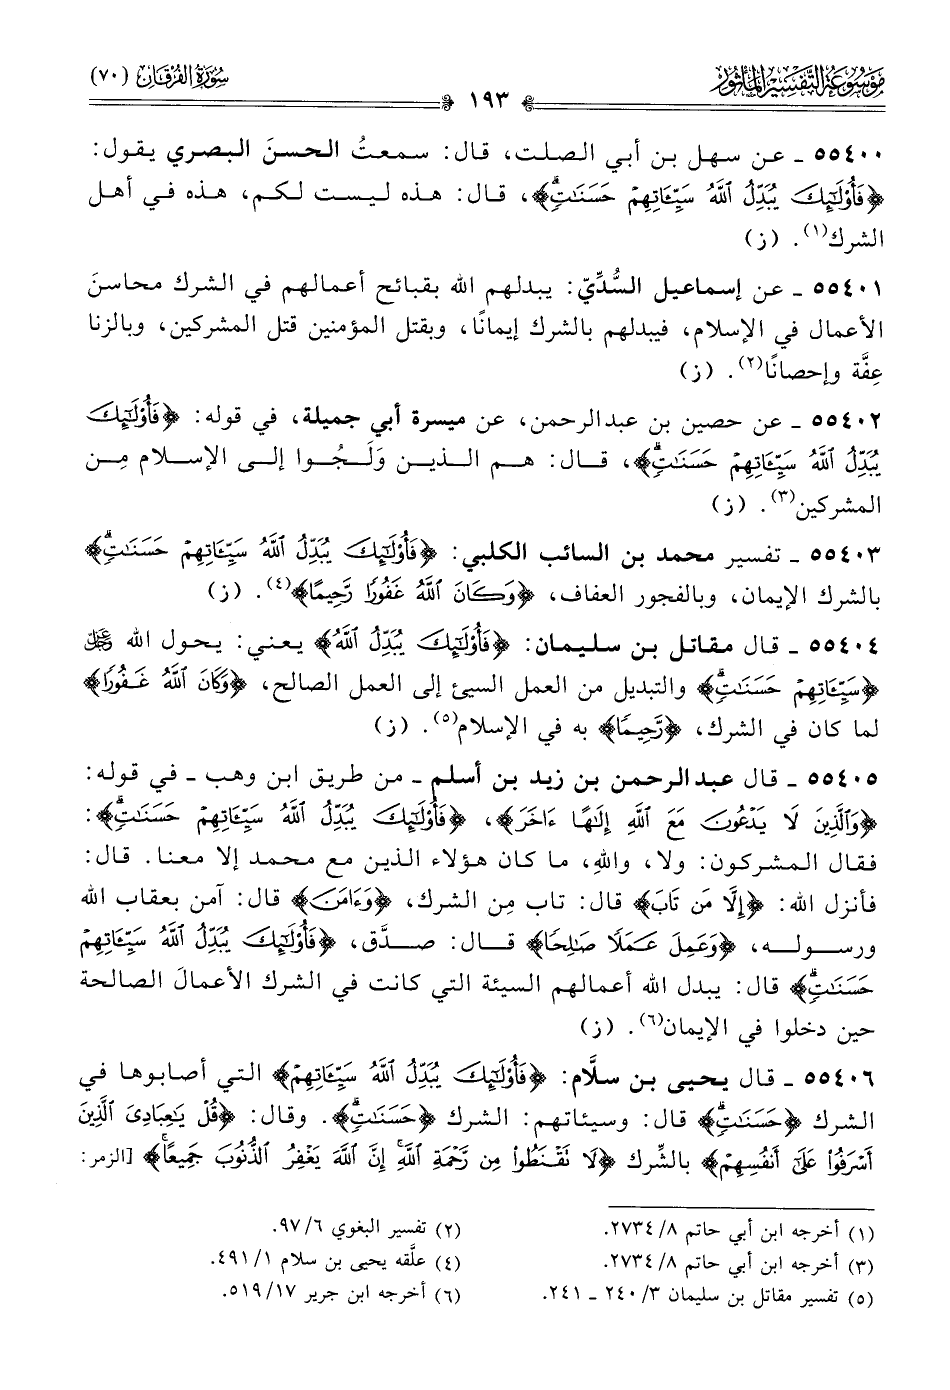 مَوْسُوعَةُ التَّفْسِيْرِ المَأْثُور
سُورَةُ الفُرْقَان (٧٠)
١٩٣
٥٥٤٠٠ ـ عن سهل بن أبي الصلت، قال: سمعتُ الحسنَ البصري يقول:
﴿فَأُوْلَٰٓئِكَ يُبَدِّلُ ٱللَّهُ سَيِّـَٔاتِهِمْ حَسَنَٰتٖۗ﴾، قال: هذه ليست لكم، هذه في أهل
الشرك(١). (ز)
٥٥٤٠١ ـ عن إسماعيل السُّدِّيّ: يبدلهم الله بقبائح أعمالهم في الشرك محاسنَ
الأعمال في الإسلام، فيبدلهم بالشرك إيمانًا، وبقتل المؤمنين قتل المشركين، وبالزنا
عِفَّة وإحصانًا(٢). (ز)
٥٥٤٠٢ ـ عن حصين بن عبدالرحمن، عن ميسرة أبي جميلة، في قوله: ﴿فَأُوْلَٰٓئِكَ
يُبَدِّلُ ٱللَّهُ سَيِّـَٔاتِهِمْ حَسَنَٰتٖۗ﴾، قال: هم الذين وَلَجُوا إلى الإسلام مِن
المشركين(٣). (ز)
٥٥٤٠٣ ـ تفسير محمد بن السائب الكلبي: ﴿فَأُوْلَٰٓئِكَ يُبَدِّلُ ٱللَّهُ سَيِّـَٔاتِهِمْ حَسَنَٰتٖۗ﴾
بالشرك الإيمان، وبالفجور العفاف، ﴿وَكَانَ ٱللَّهُ غَفُورٗا رَّحِيمٗا﴾(٤). (ز)
٥٥٤٠٤ ـ قال مقاتل بن سليمان: ﴿فَأُوْلَٰٓئِكَ يُبَدِّلُ ٱللَّهُ﴾ يعني: يحول الله ﷻ
﴿سَيِّـَٔاتِهِمْ حَسَنَٰتٖۗ﴾ والتبديل من العمل السيئ إلى العمل الصالح، ﴿وَكَانَ ٱللَّهُ غَفُورٗا﴾
لما كان في الشرك، ﴿رَّحِيمٗا﴾ به في الإسلام(٥). (ز)
٥٥٤٠٥ ـ قال عبدالرحمن بن زيد بن أسلم ـ من طريق ابن وهب ـ في قوله:
﴿وَٱلَّذِينَ لَا يَدْعُونَ مَعَ ٱللَّهِ إِلَٰهًا ءَاخَرَ﴾، ﴿فَأُوْلَٰٓئِكَ يُبَدِّلُ ٱللَّهُ سَيِّـَٔاتِهِمْ حَسَنَٰتٖۗ﴾:
فقال المشركون: ولا، واللهِ، ما كان هؤلاء الذين مع محمد إلا معنا. قال:
فأنزل الله: ﴿إِلَّا مَن تَابَ﴾ قال: تاب مِن الشرك، ﴿وَءَامَنَ﴾ قال: آمن بعقاب الله
ورسوله، ﴿وَعَمِلَ عَمَلٗا صَٰلِحٗا﴾ قال: صدَّق، ﴿فَأُوْلَٰٓئِكَ يُبَدِّلُ ٱللَّهُ سَيِّـَٔاتِهِمْ
حَسَنَٰتٖۗ﴾ قال: يبدل الله أعمالهم السيئة التي كانت في الشرك الأعمالَ الصالحة
حين دخلوا في الإيمان(٦). (ز)
٥٥٤٠٦ ـ قال يحيى بن سلَّام: ﴿فَأُوْلَٰٓئِكَ يُبَدِّلُ ٱللَّهُ سَيِّـَٔاتِهِمْ﴾ التي أصابوها في
الشرك ﴿حَسَنَٰتٖۗ﴾ قال: وسيئاتهم: الشرك ﴿حَسَنَٰتٖۗ﴾. وقال: ﴿قُلْ يَٰعِبَادِيَ ٱلَّذِينَ
أَسْرَفُواْ عَلَىٰٓ أَنفُسِهِمْ﴾ بالشِّرك ﴿لَا تَقْنَطُواْ مِن رَّحْمَةِ ٱللَّهِۚ إِنَّ ٱللَّهَ يَغْفِرُ ٱلذُّنُوبَ جَمِيعًاۚ﴾ [الزمر:
(١) أخرجه ابن أبي حاتم ٨/ ٢٧٣٤.
(٢) تفسير البغوي ٦/ ٩٧.
(٣) أخرجه ابن أبي حاتم ٨/ ٢٧٣٤.
(٤) علَّقه يحيى بن سلام ١/ ٤٩١.
(٥) تفسير مقاتل بن سليمان ٣/ ٢٤٠ ـ ٢٤١.
(٦) أخرجه ابن جرير ١٧/ ٥١٩.